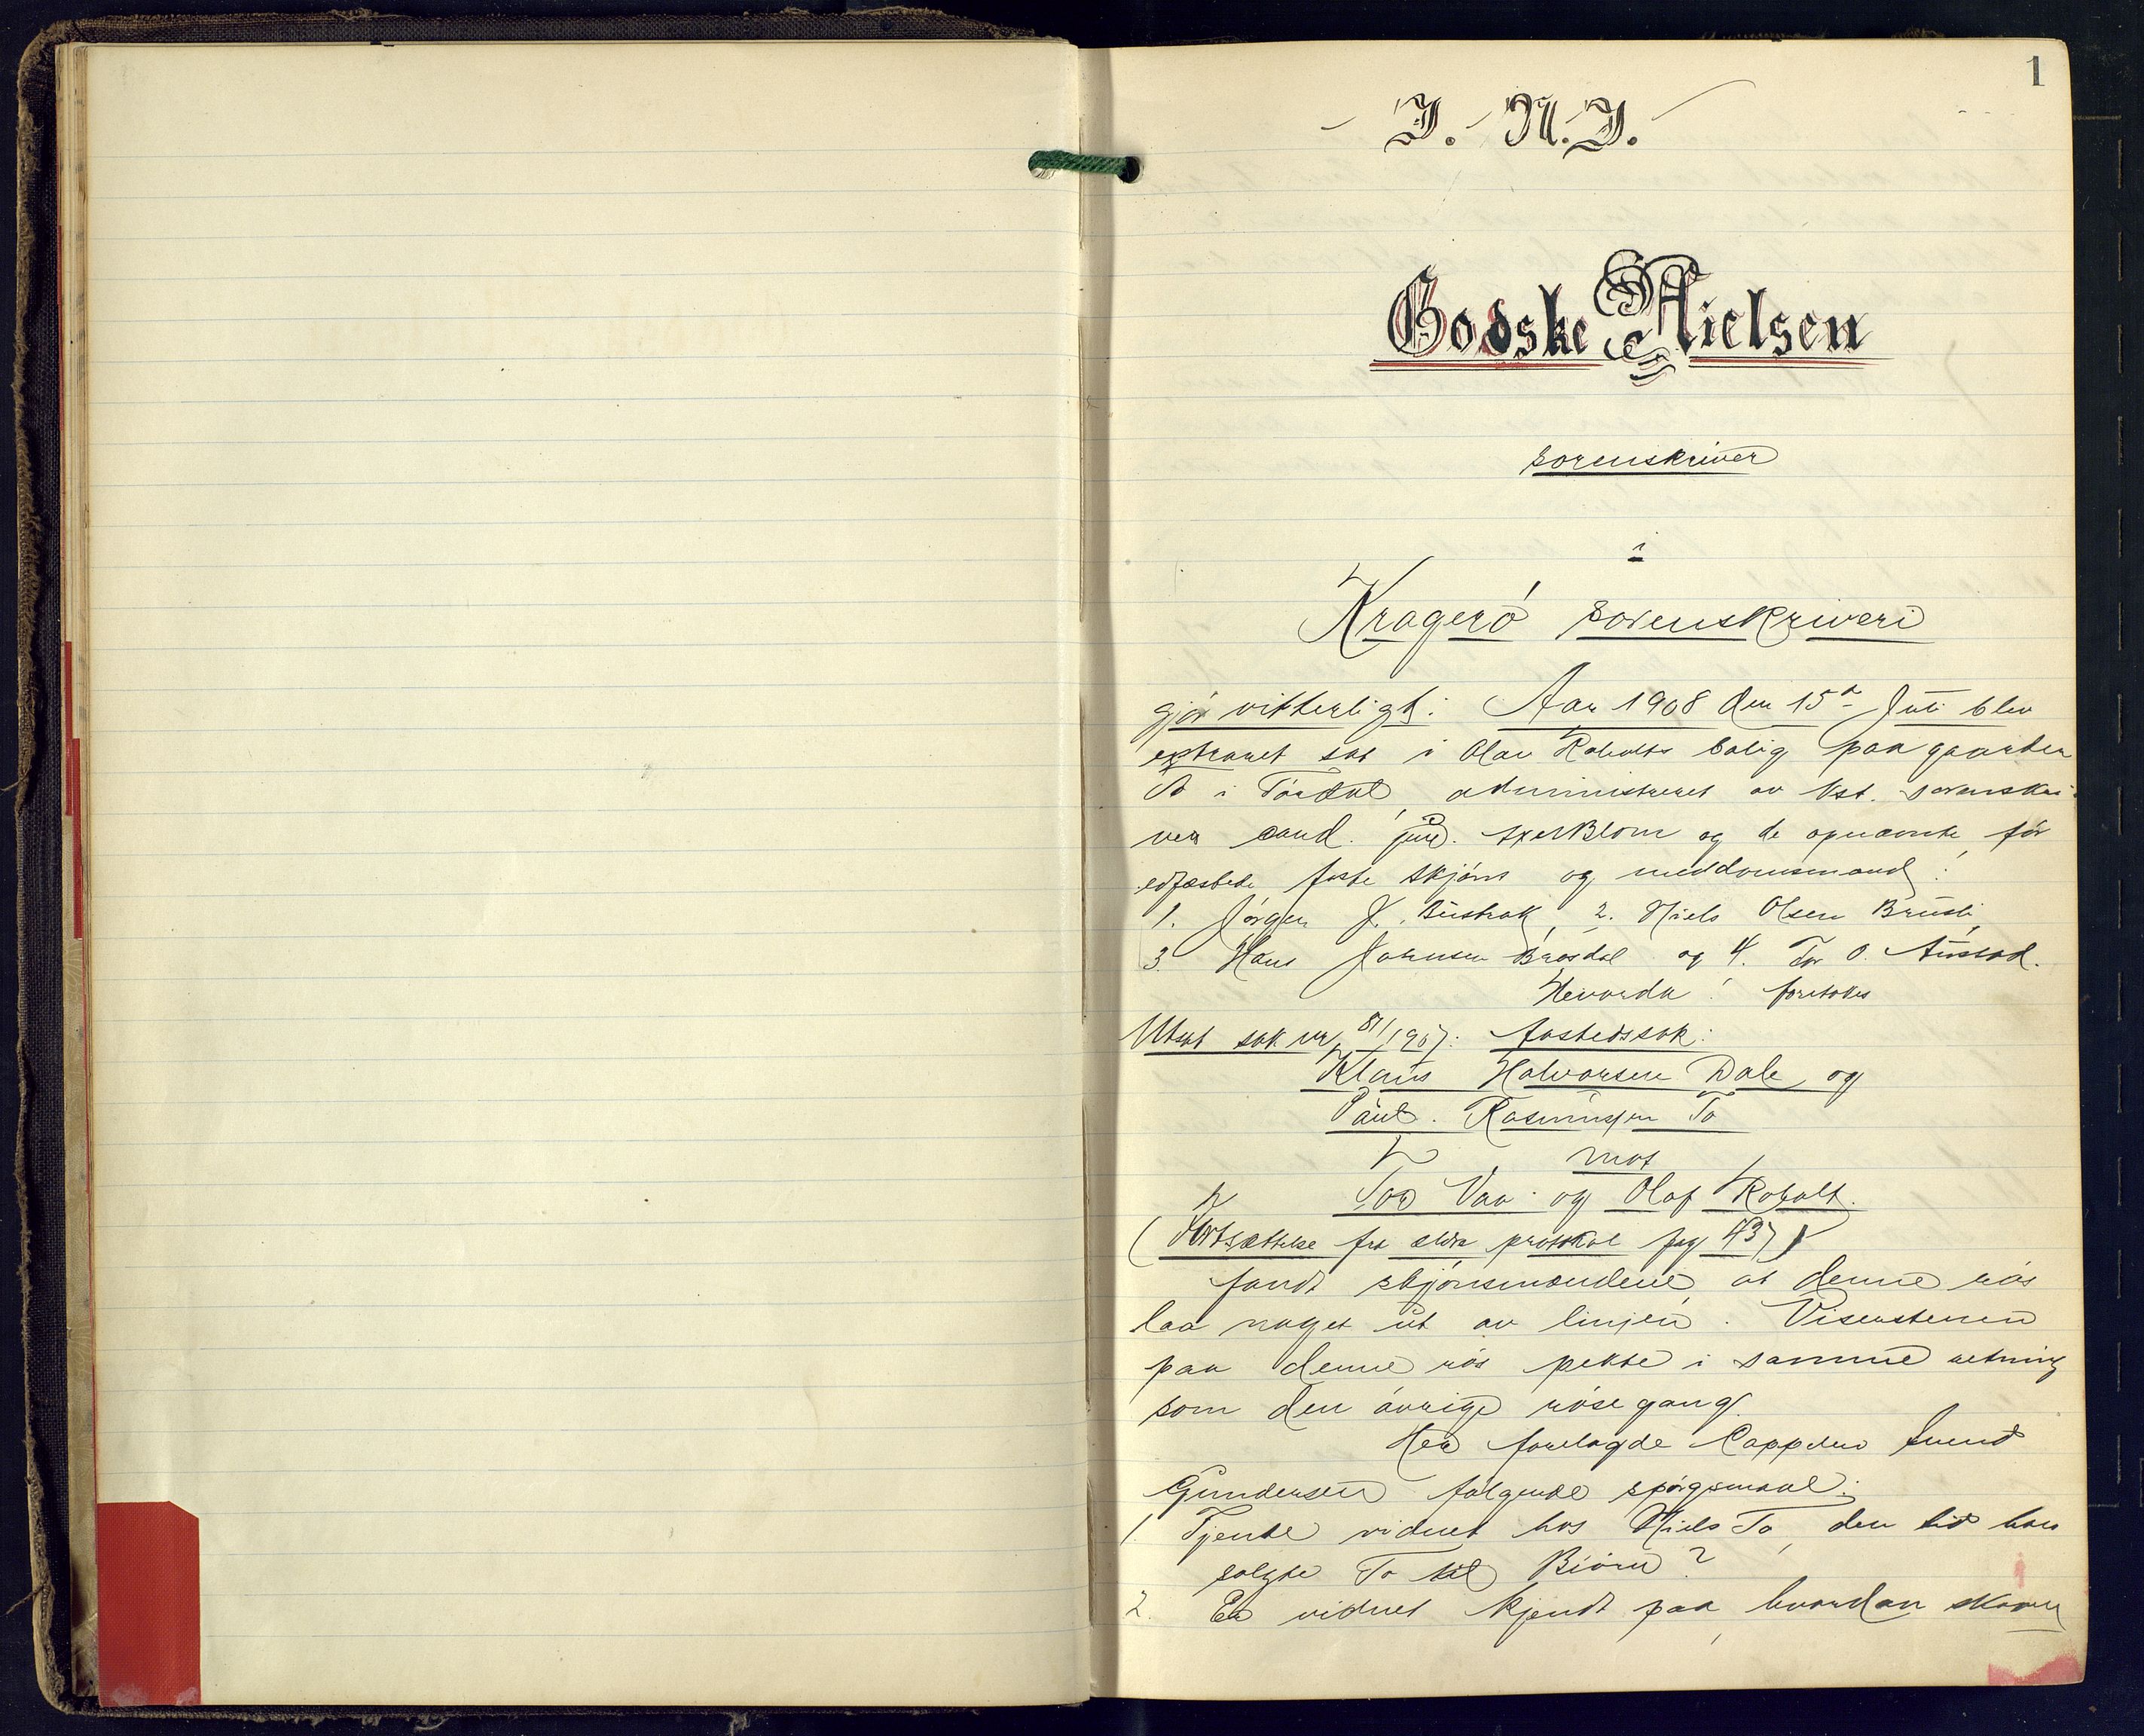 1
I. N. J.
Godske Nielsen
sorenskriver
i
Kragerø sorenskriveri
gjør vitterligt: Aar 1908 den 15de Juli blev
extraret sat i Olav Roholts bolig paa gaarden
To i Tørdal, administreret av kst. sorenskri-
ver cand. jur. Blom og de opnævnte, før
edfæstede faste skjøns og meddomsmænd:
1. Jørgen J. Bustrak, 2. Niels Olsen Brusli,
3. Hans Johnsen Brosdal og 4. Tor O. Austad.
Hvorda! foretokes
Utsat sak nr. 81/1907: Aastedssak:
Klaus Halvorsen Dale og
Paul Rasmussen To
mot
Tov Vaa og Olaf Roholt.
(Fortsættelse fra ældre protokol pag 437)
fandt skjønsmændene, at denne røs
laa noget ut av linjen. Viserstenen
paa denne røs pekte i samme retning
som den øvrige røsegang.
Her forelagde Cappelen Svend
Gundersen følgende spørgsmaal:
1. Tjente vidnet hos Niels To, den tid han
solgte To til Biørn?
2. Er vidnet kjendt paa, hvordan skoven